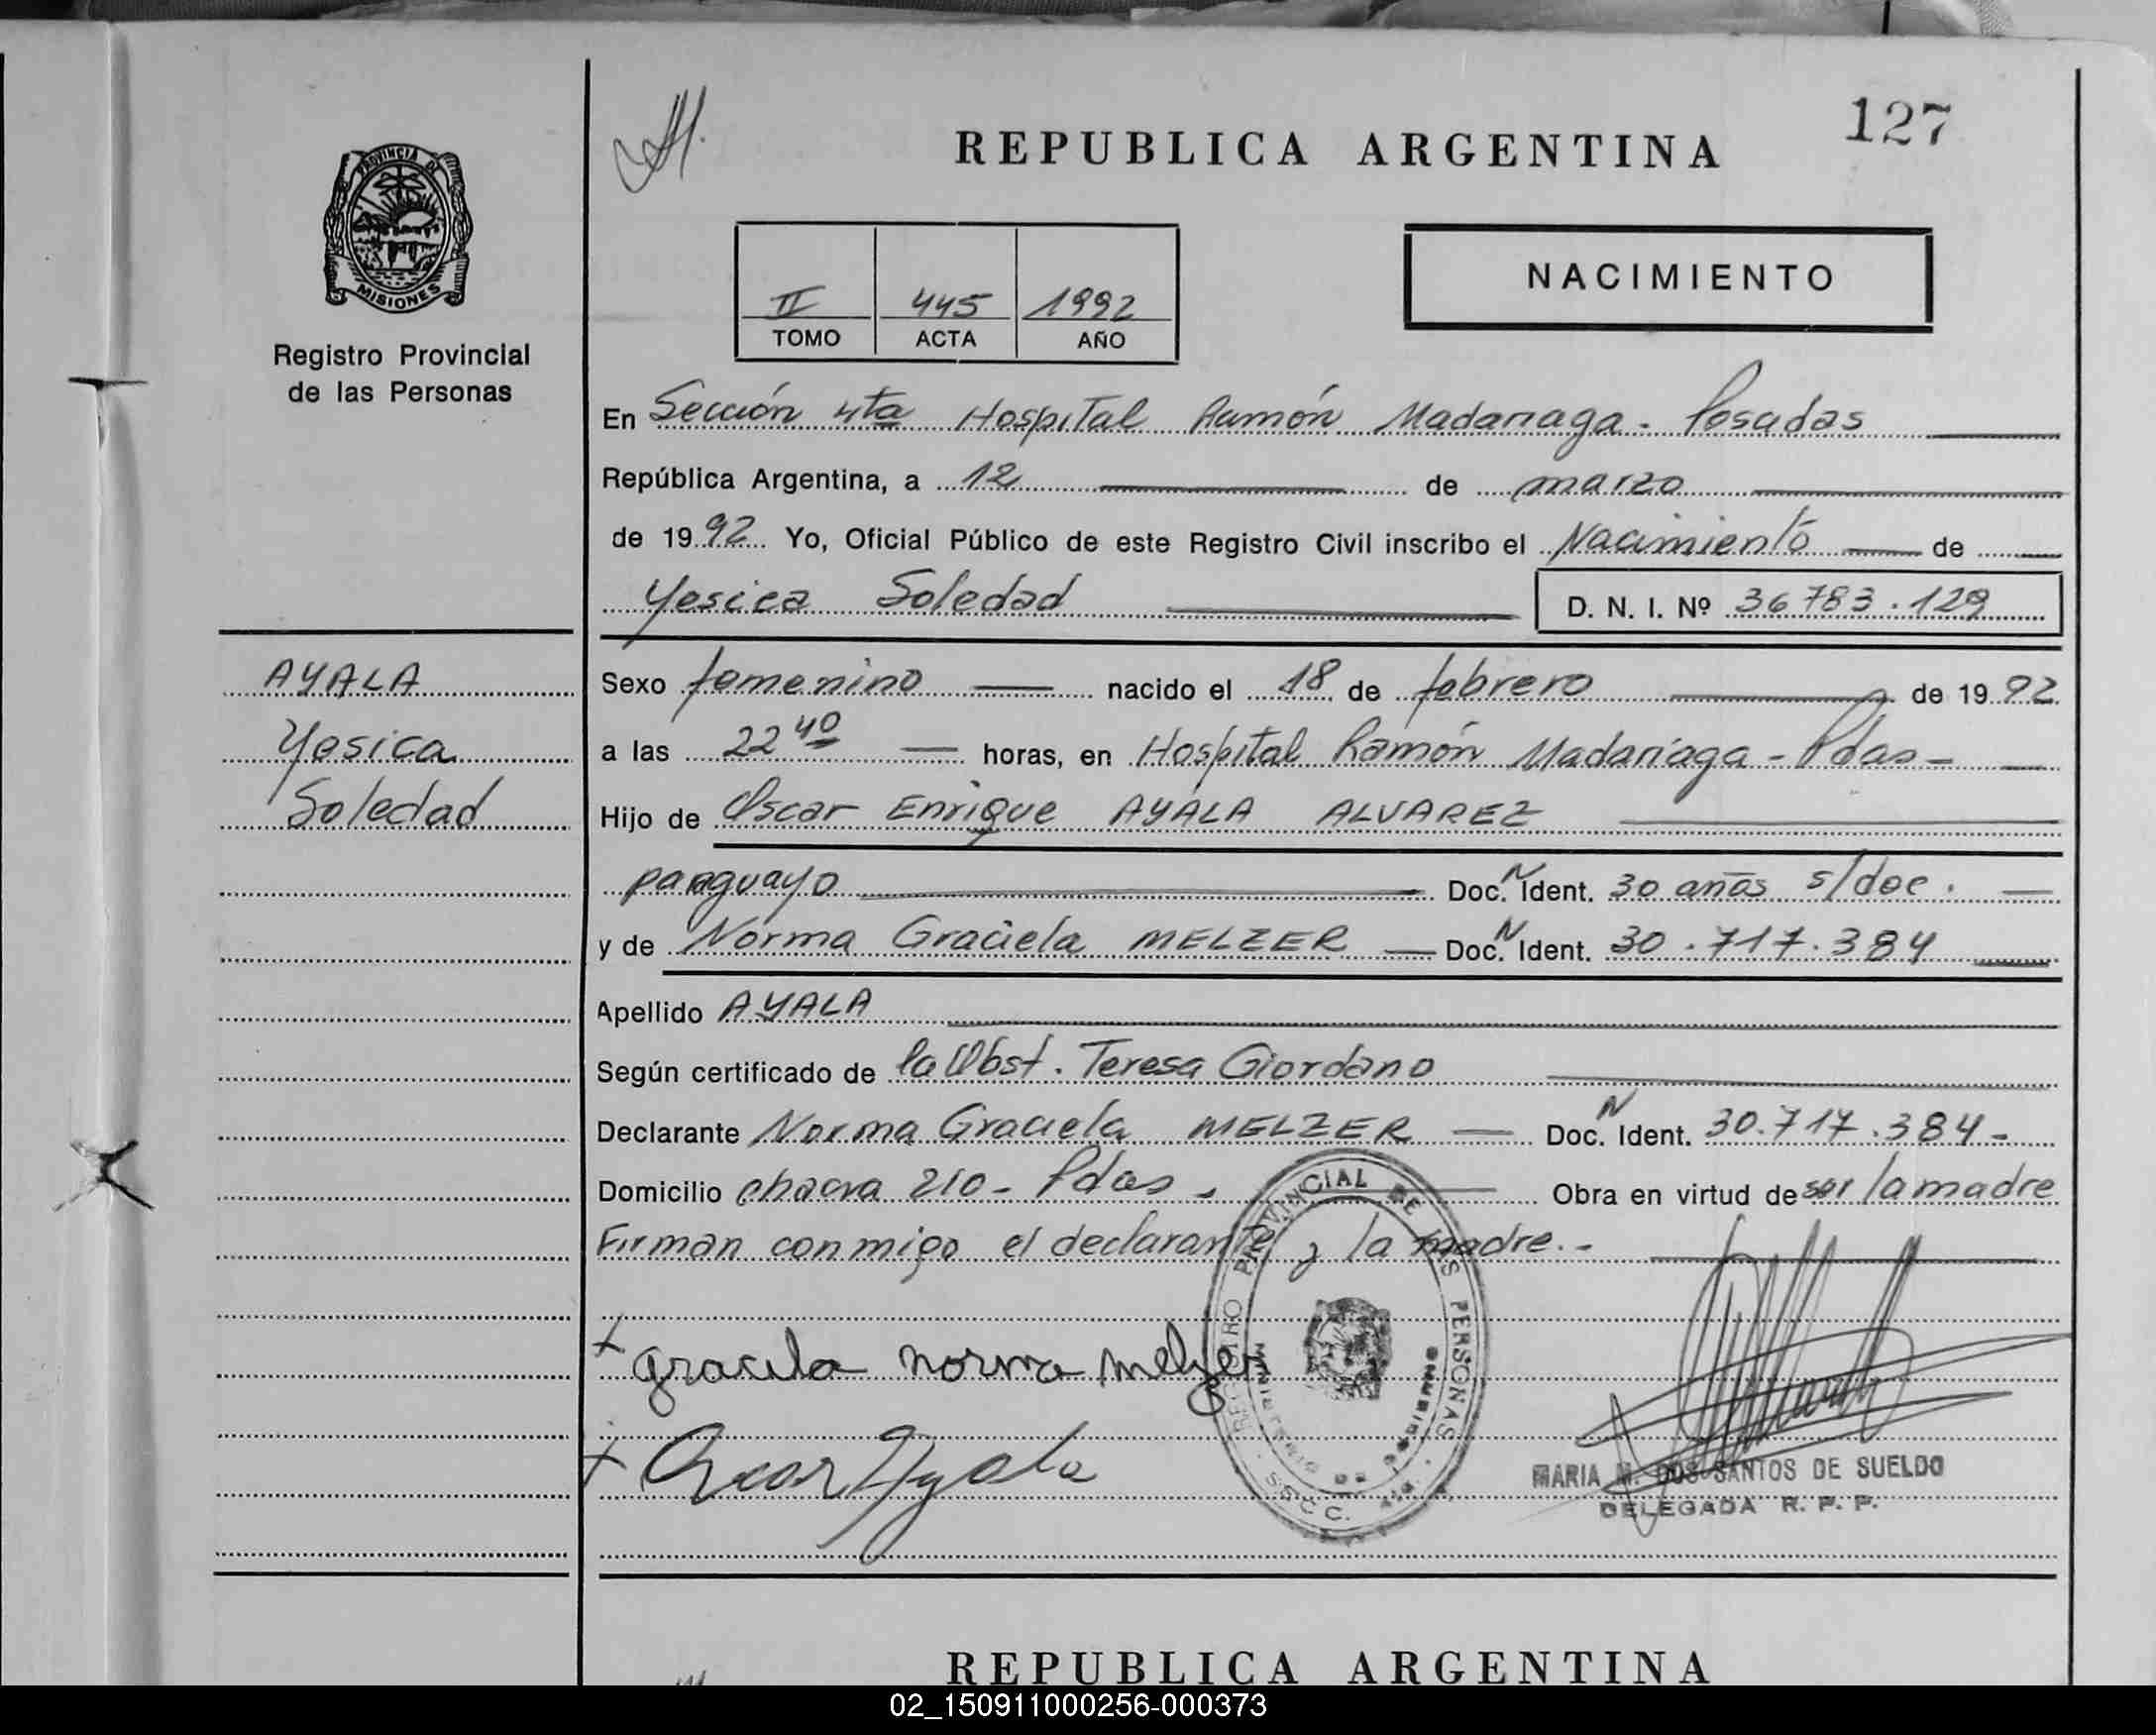 127
REPUBLICA ARGENTINA
PROVINCIA DE
MISIONES
Registro Provincial
de las Personas
NACIMIENTO
II 445 1992
TOMO ACTA AÑO
En Sección 4ta Hospital Ramón Madariaga - Posadas
República Argentina, a 12 de marzo
de 1992 Yo, Oficial Público de este Registro Civil inscribo el Nacimiento de
Yesica Soledad D. N. I. Nº 36.783.129
AYALA
Yesica
Soledad
Sexo femenino nacido el 18 de febrero de 1992
a las 22 40 horas, en Hospital Ramón Madariaga - Pdas -
Hijo de Oscar Enrique AYALA ALVAREZ
paraguayo Doc. N Ident. 30 años s/doc.
y de Norma Graciela MELZER Doc. N Ident. 30.717.384
Apellido AYALA
Según certificado de la Obst. Teresa Giordano
Declarante Norma Graciela MELZER Doc. N Ident. 30.717.384 -
Domicilio chacra 210 - Pdas. Obra en virtud de ser la madre
Firman conmigo el declarante y la madre.-
+ graciela norma melzer
+ Oscar Ayala
REGISTRO PROVINCIAL DE LAS PERSONAS
MINISTERIO DE GOBIERNO
SS.C.C.
MARIA M. DOS SANTOS DE SUELDO
DELEGADA R. P. P.
REPUBLICA ARGENTINA
02_150911000256-000373